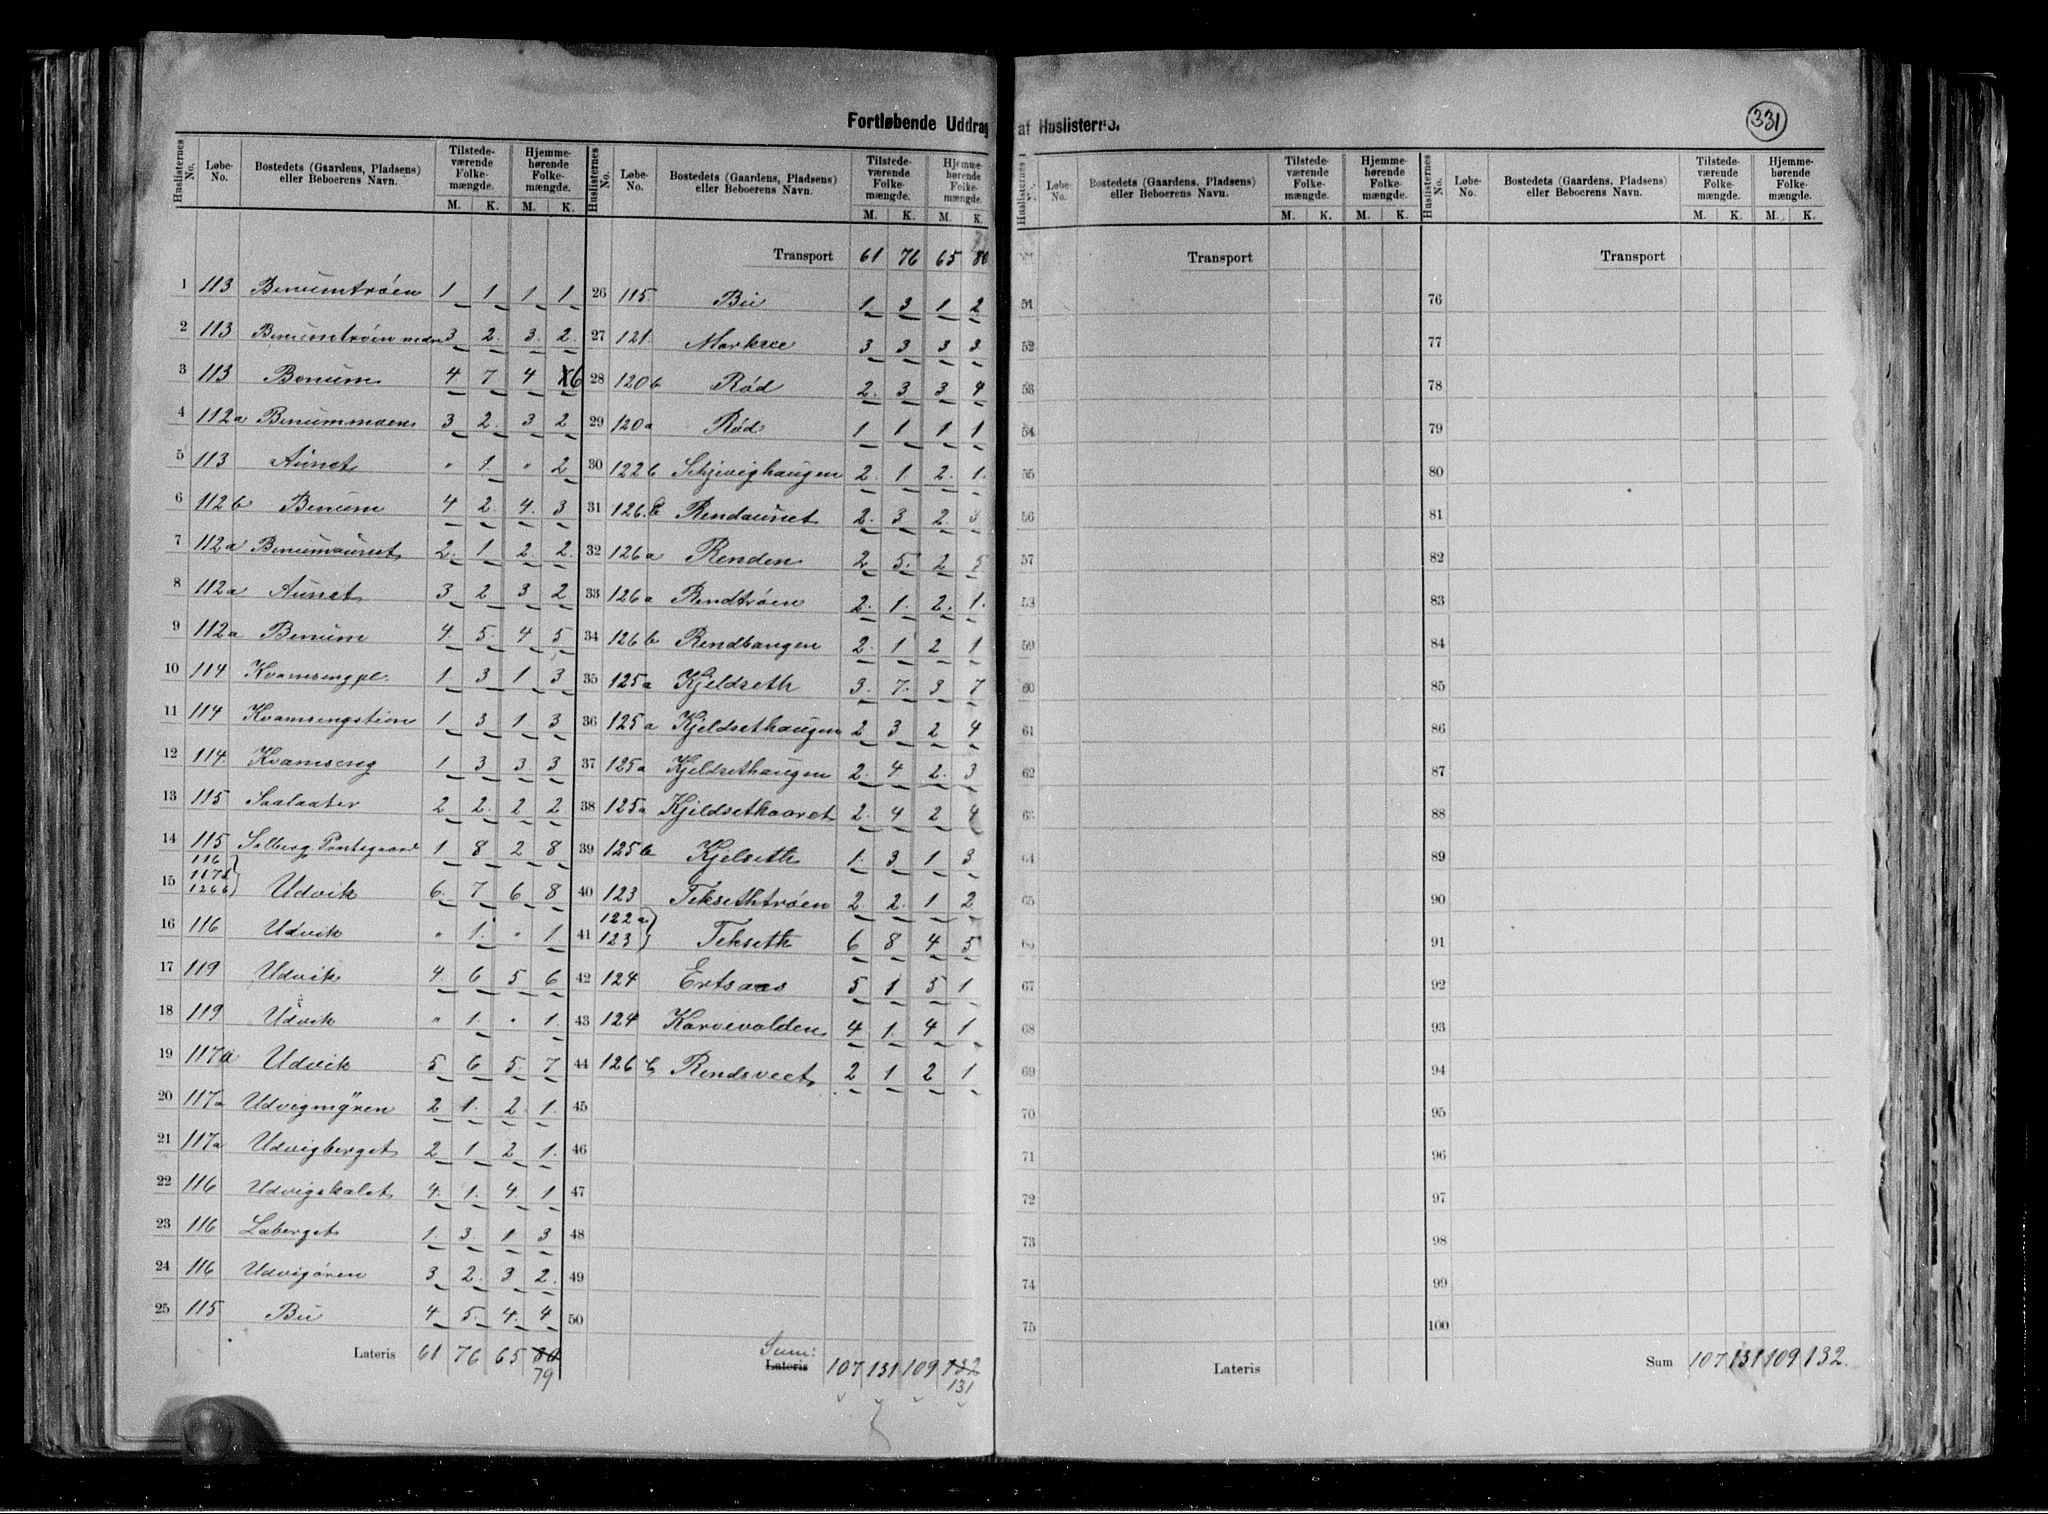 Fortløbende Uddrag af Huslisterne.
331
Huslisternes No. Løbe-No. Bostedets (Gaardens, Pladsens) eller Beboerens Navn. Tilstedeværende Folkemængde. M. K. Hjemmehørende Folkemængde. M. K.
1 113 Benumtrøen 1 1 1 1
2 113 Benumtrøen nedre 3 2 3 2
3 113 Benum 4 7 4 6
4 112a Benummoen 3 2 3 2
5 113 Aunet " 1 " 2
6 112b Benum 4 2 4 3
7 112a Benumaunet 2 1 2 2
8 112a Aunet 3 2 3 2
9 112a Benum 4 5 4 5
10 114 Kvamsengpl. 1 3 1 3
11 114 Kvamsengstien 1 3 1 3
12 114 Kvamseng 1 3 3 3
13 115 Saalaater 2 2 2 2
14 115 Solberg 1 8 2 8
15 116 117b 126b Udvik 6 7 6 8
16 116 Udvik " 1 " 1
17 119 Udvik 4 6 5 6
18 119 Udvik " 1 " 1
19 117a Udvik 5 6 5 7
20 117a Udvigmyren 2 1 2 1
21 117a Udvigberget 2 1 2 1
22 116 Udvigskalet 4 1 4 1
23 116 Laberget 1 3 1 3
24 116 Udvigøren 3 2 3 2
25 115 Bu 4 5 4 4
Lateris 61 76 65 80
79
Huslisternes No. Løbe-No. Bostedets (Gaardens, Pladsens) eller Beboerens Navn. Tilstedeværende Folkemængde. M. K. Hjemmehørende Folkemængde. M. K.
Transport 61 76 65 80
26 115 Bu 1 3 1 2
27 121 Markse 3 3 3 3
28 120b Rød 2 3 3 4
29 120a Rød 1 1 1 1
30 122b Schjevighaugen 2 1 2 1
31 126b Rendaunet 2 3 2 3
32 126a Renden 2 5 2 5
33 126a Rendtrøen 2 1 2 1
34 126b Rendbaugen 2 1 2 1
35 125a Kjeldseth 3 7 3 7
36 125a Kjeldsethaugen 2 3 2 4
37 125a Kjeldsethaugen 2 4 2 3
38 125a Kjeldsethaaret 2 4 2 4
39 125b Kjelseth 1 3 1 3
40 123 Teksethtrøen 2 2 1 2
41 122a 123 Tekseth 6 8 4 5
42 124 Ertsaas 5 1 5 1
43 124 Karvevolden 4 1 4 1
44 126b Rendsveet 2 1 2 1
45
46
47
48
49
50
Sum: Lateris 107 131 109 132
131
Huslisternes Løbe-No. Bostedets (Gaardens, Pladsens) eller Beboerens Navn. Tilstedeværende Folkemængde. M. K. Hjemmehørende Folkemængde. M. K.
Transport
51
52
53
54
55
56
57
58
59
60
61
62
63
64
65
66
67
68
69
70
71
72
73
74
75
Lateris
Huslisternes No. Løbe-No. Bostedets (Gaardens, Pladsens) eller Beboerens Navn. Tilstedeværende Folkemængde. M. K. Hjemmehørende Folkemængde. M. K.
Transport
76
77
78
79
80
81
82
83
84
85
86
87
88
89
90
91
92
93
94
95
96
97
98
99
100
Sum 107 131 109 132